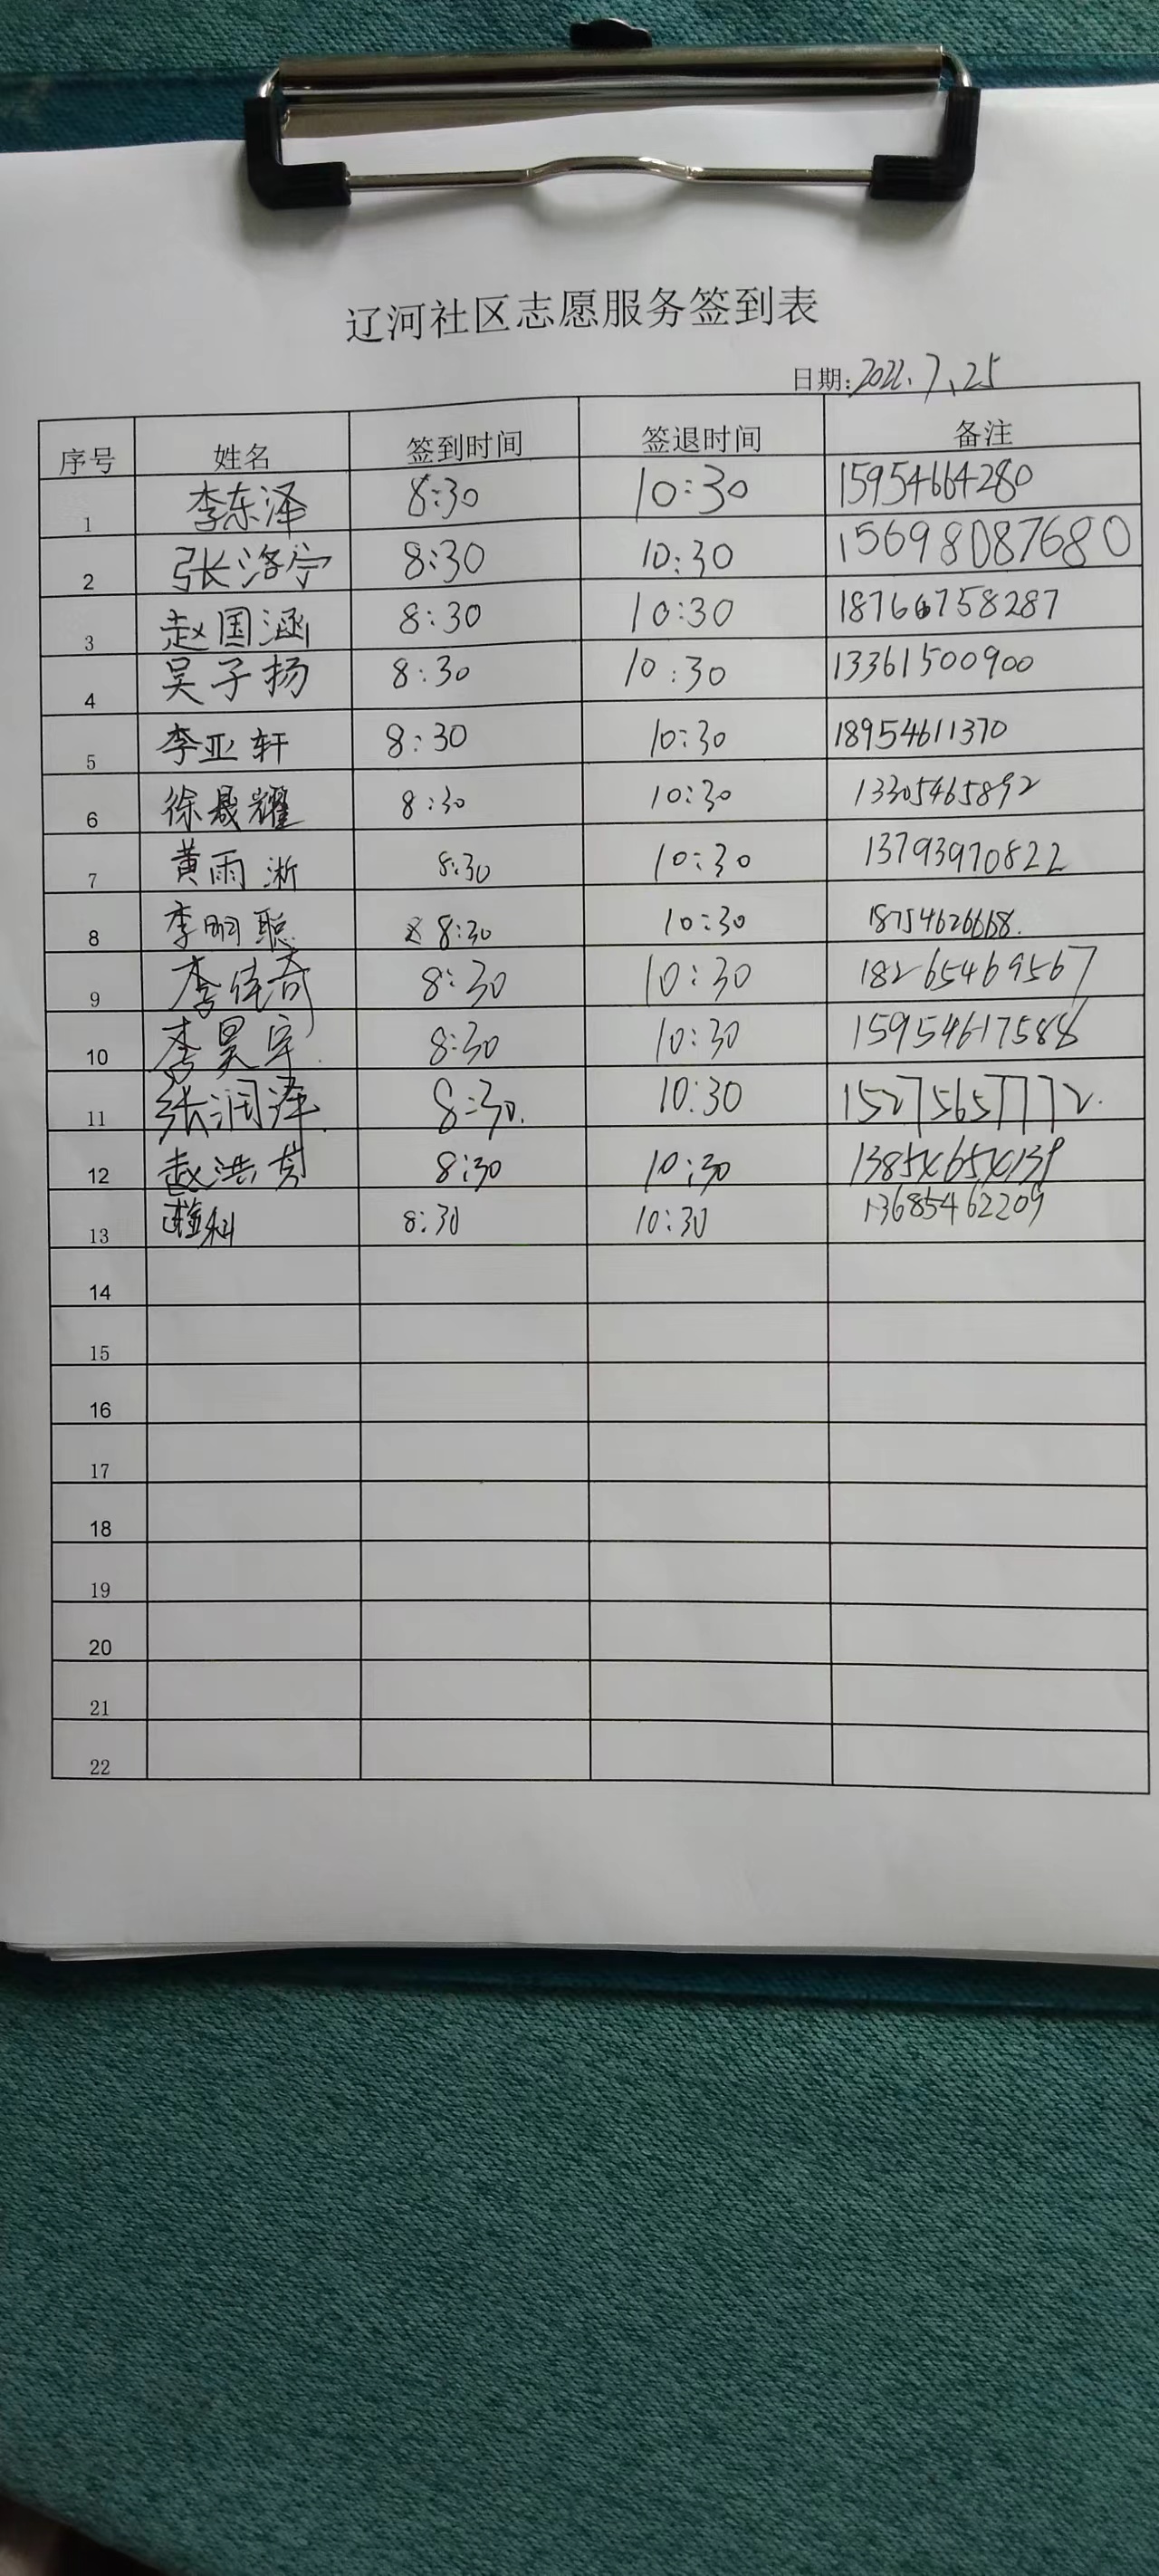 辽河社区志愿服务签到表
日期:2022.7.25
序号 姓名 签到时间 签退时间 备注
1 李东泽 8:30 10:30 15954664280
2 张洛宁 8:30 10:30 15698087680
3 赵国涵 8:30 10:30 18766758287
4 吴子扬 8:30 10:30 13361500900
5 李亚轩 8:30 10:30 18954611370
6 徐晟耀 8:30 10:30 13305465892
7 黄雨淅 8:30 10:30 13793970822
8 李明聪 8:30 10:30
9 李佳奇 8:30 10:30 18265469567
10 李昊宇 8:30 10:30 15954617588
11 张润泽 8:30. 10:30 15275657772.
12 赵浩 8:30 10:30
13 8:30 10:30 13685462209
14
15
16
17
18
19
20
21
22